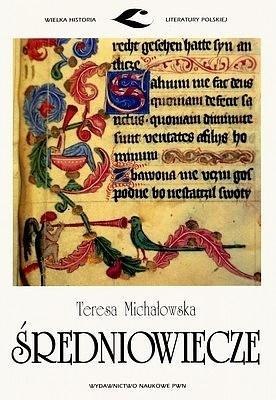 WIELKA HISTORIA LITERATURY POLSKIEJ
recht gesehen hatte syn an
tlicze
Saluum me fac deus
quoniam defecit sa
ctus · quoniam diminute
sunt ueritates afilijs ho
minum
Zbawona me uczin gos
podne bo nestatczil swoty
Teresa Michałowska
ŚREDNIOWIECZE
WYDAWNICTWO NAUKOWE PWN